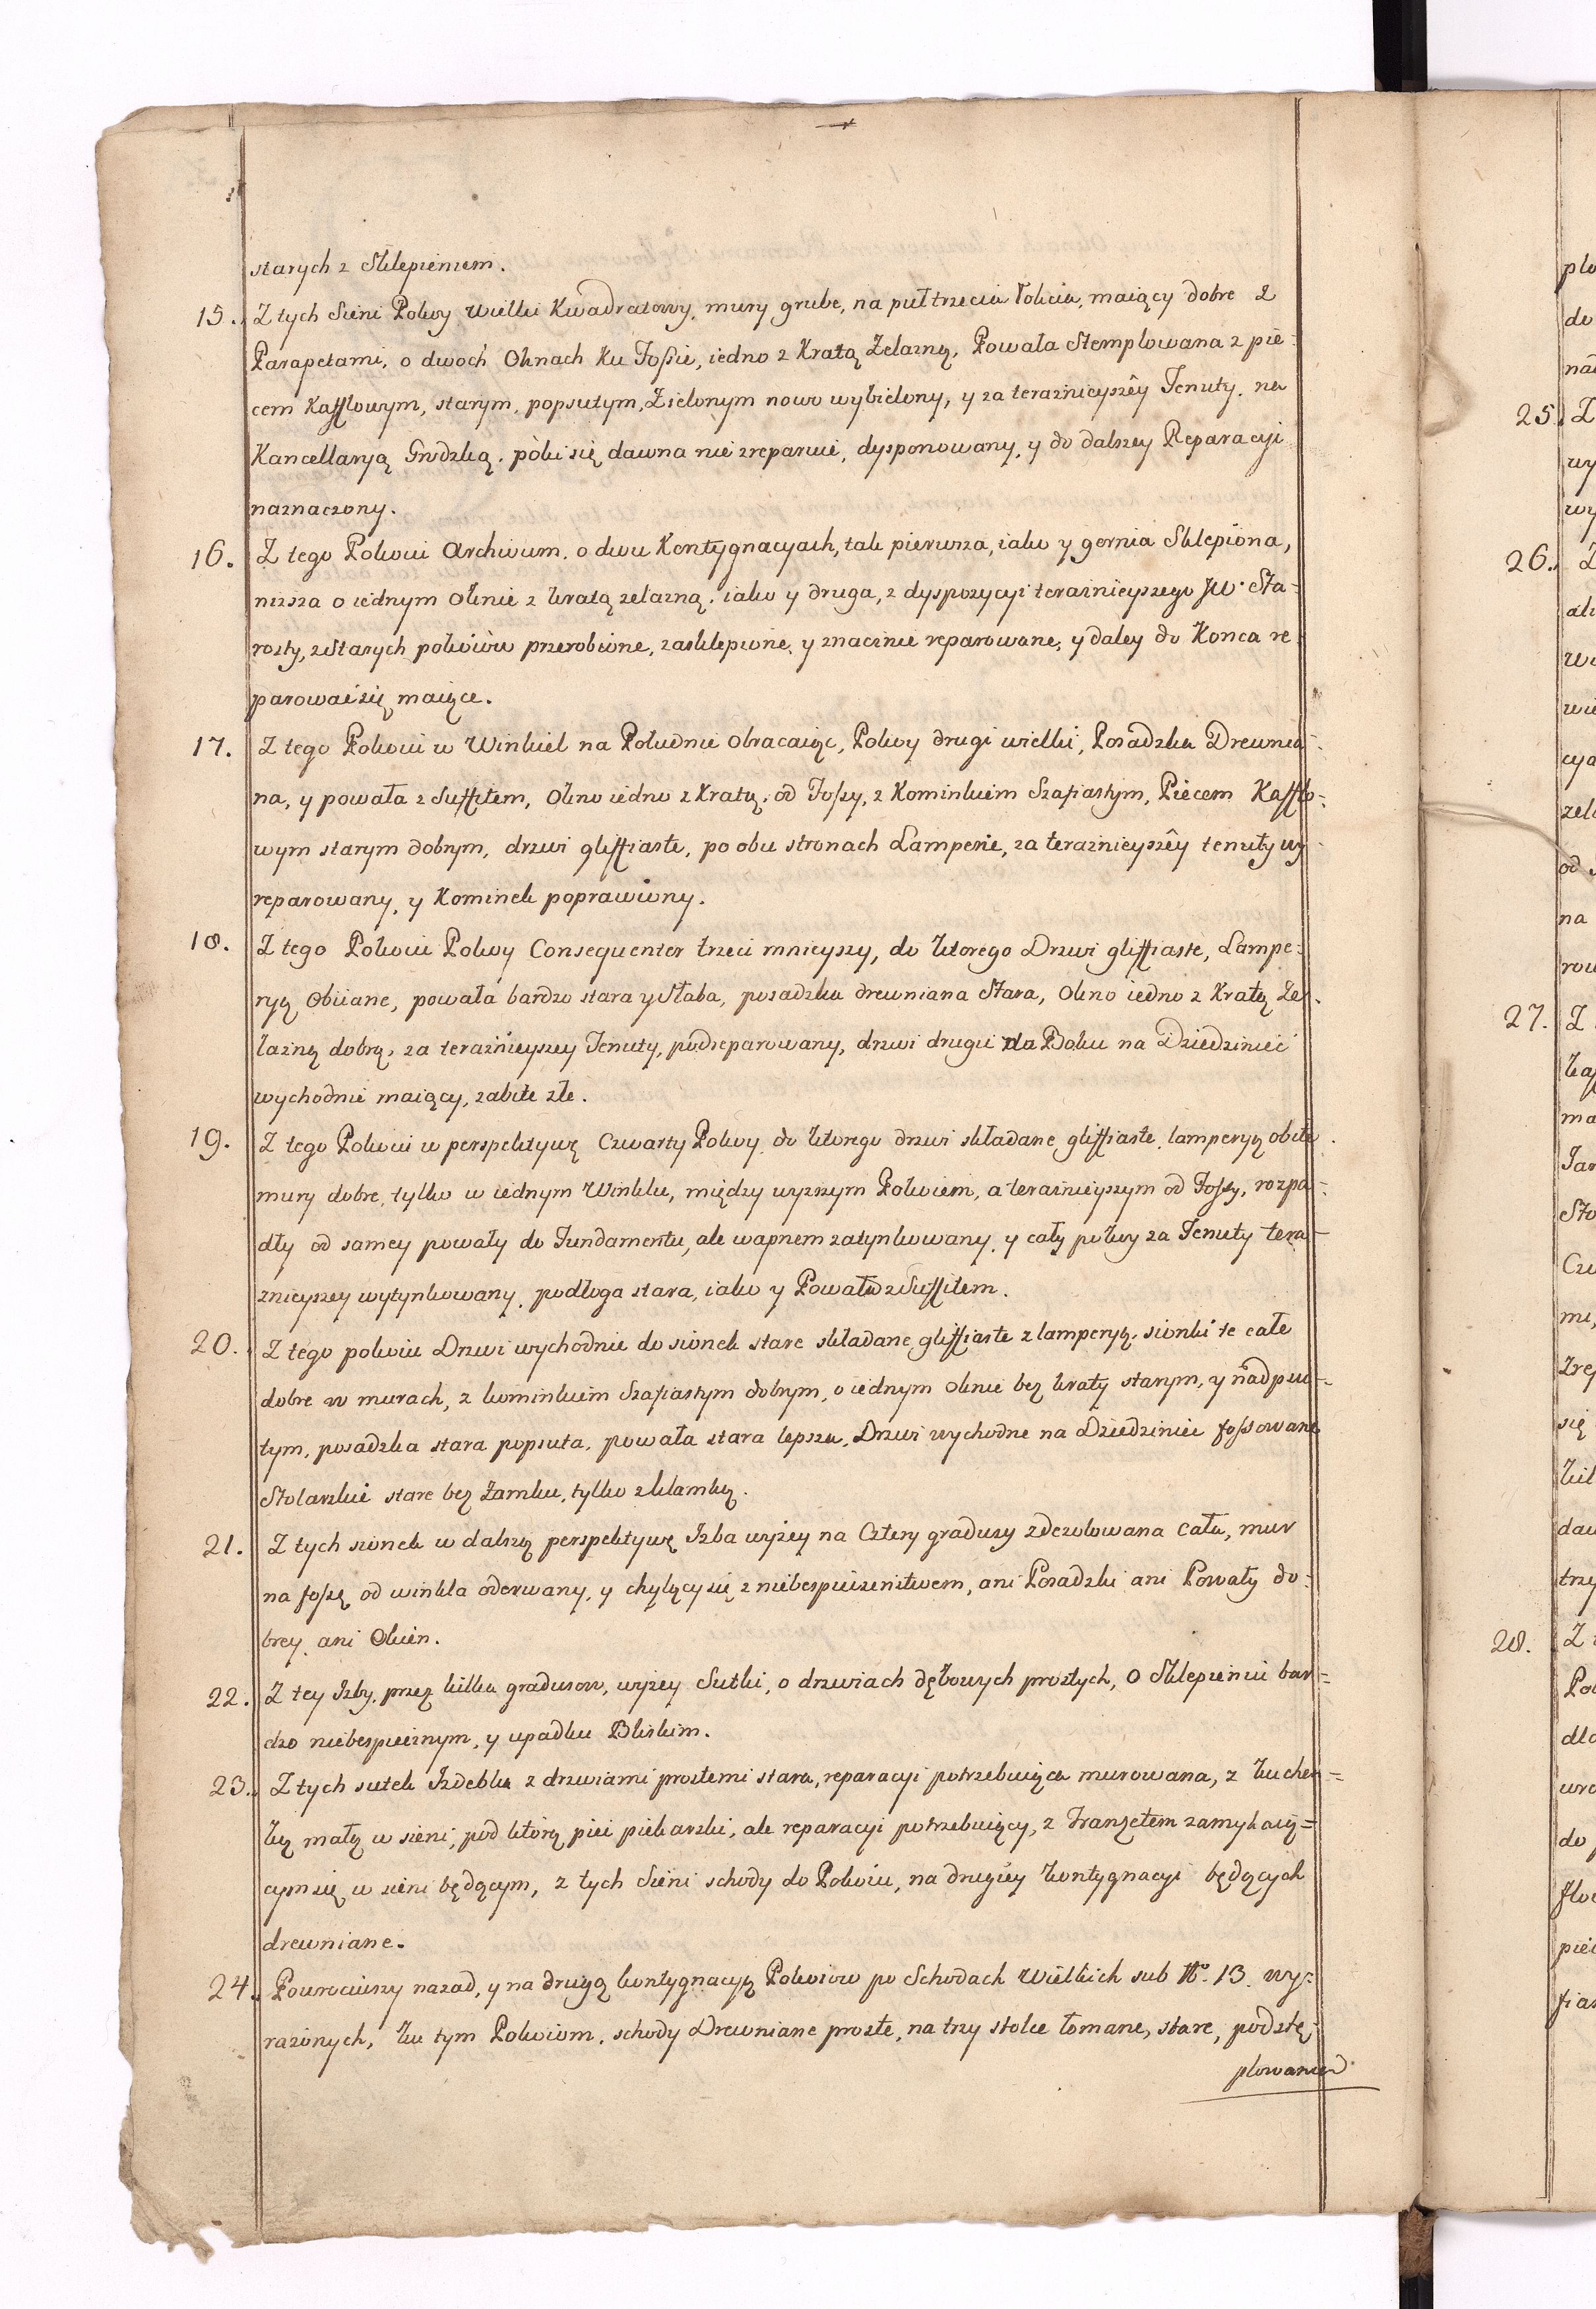 starych z Sklepieniem.
15. Z tych Sieni Pokoy wielki Kwadratowy, mury grube, na puł trzecia łokcia, maiący dobre z
Parapetami, o dwoch Oknach Ku Fossie, iedno z Kratą Zelazną, Powała Stemplowana z pie=
cem Kafflowym, starym, popsutym, Zielonym nowo wybielony, y za teraznieyszêy Tenuty, na
Kancellaryą Grodzką, póki się dawna nie zreparuie, dysponowany, y do dalszey Reparacyi
naznaczony.
16. Z tego Pokoiu Archivum, o dwu Kontygnacyach, tak pierwsza, iako y gornia Sklepiona,
nizsza o iednym Oknie z kratą zelazną, iako y druga, z dyspozycyi teraznieyszego JW. Sta=
rosty, z starych pokóiow przerobione, zasklepione, y znacznie reparowane, y daley do Konca re=
parować się maiące.
17. Z tego Pokoiu w Winkiel na Południe obracaiąc, Pokoy drugi wielki, Posadzka Drewnia=
na, y powała z Suffitem, Okno iedno z Kratą, od Fossy, z Kominkiem Szafiastym, Piecem Kafflo=
wym starym dobrym, drzwi gliffiaste, po obu stronach Lamperie, za teraznieyszêy tenuty wy=
reparowany, y Kominek poprawiony.
18. Z tego Pokoiu Pokoy Consequenter trzeci mnieyszy, do ktorego Drzwi gliffiaste, Lampe=
ryą Obiiane, powała bardzo stara y słaba, posadzka drewniana Stara, Okno iedno z Kratą Ze=
lazną dobrą, za teraznieyszey Tenuty, podreparowany, drzwi drugie do Boku na Dziedziniec
wychodnie maiący, zabite złe.
19. Z tego Pokoiu w perspektywę Czwarty Pokoy, do ktorego drzwi składane gliffiaste, lamperyą obite
mury dobre, tylko w iednym Winklu, między wyzszym Pokoiem, a teraznieyszym od Fossy, rozpa=
dły od samey powały do Fundamentu, ale wapnem zatynkowany, y cały pokoy za Tenuty tera=
znieyszey wytynkowany, podłoga stara, iako y Powała z Suffitem.
20. Z tego pokoiu Drzwi wychodnie do sionek stare składane gliffiaste z lamperyą, sionki te całe
dobre w murach, z kominkiem Szafiastym dobrym, o iednym oknie bez kraty starym, y nadpsu=
tym, posadzka stara popsuta, powała stara lepsza, Drzwi wychodne na Dziedziniec fossowane
Stolarskie stare bez Zamku, tylko z klamką.
21. Z tych sionek w dalszą perspektywę Izba wyżey na Cztery gradusy zdezolowana cała, mur
na fossę od winkla oderwany, y chylący się z niebespieczenstwem, ani Posadzki ani Powały do=
brey, ani Okien.
22. Z tey Izby, przez kilka gradusow, wyżey Sutki, o drzwiach dębowych prostych, o Sklepieniu bar=
dzo niebespiecznym, y upadku Bliskim.
23. Z tych sutek Izdebka z drzwiami prostemi stara, reparacyi potrzebuiąca murowana, z kuchen=
ką małą w sieni, pod ktorą piec piekarski, ale reparacyi potrzebuiący, z Tranzetem zamykaią=
cym się w sieni będącym, z tych Sieni schody do Pokoiu, na drugiey kontygnacyi będących
drewniane.
24. Powrociwszy nazad, y na drugą kontygnacyą Pokoiow po Schodach Wielkich sub No. 13. wy=
rażonych, ku tym Pokoiom, schody Drewniane proste, na trzy stolce łomane, stare, podstę=
plowanied